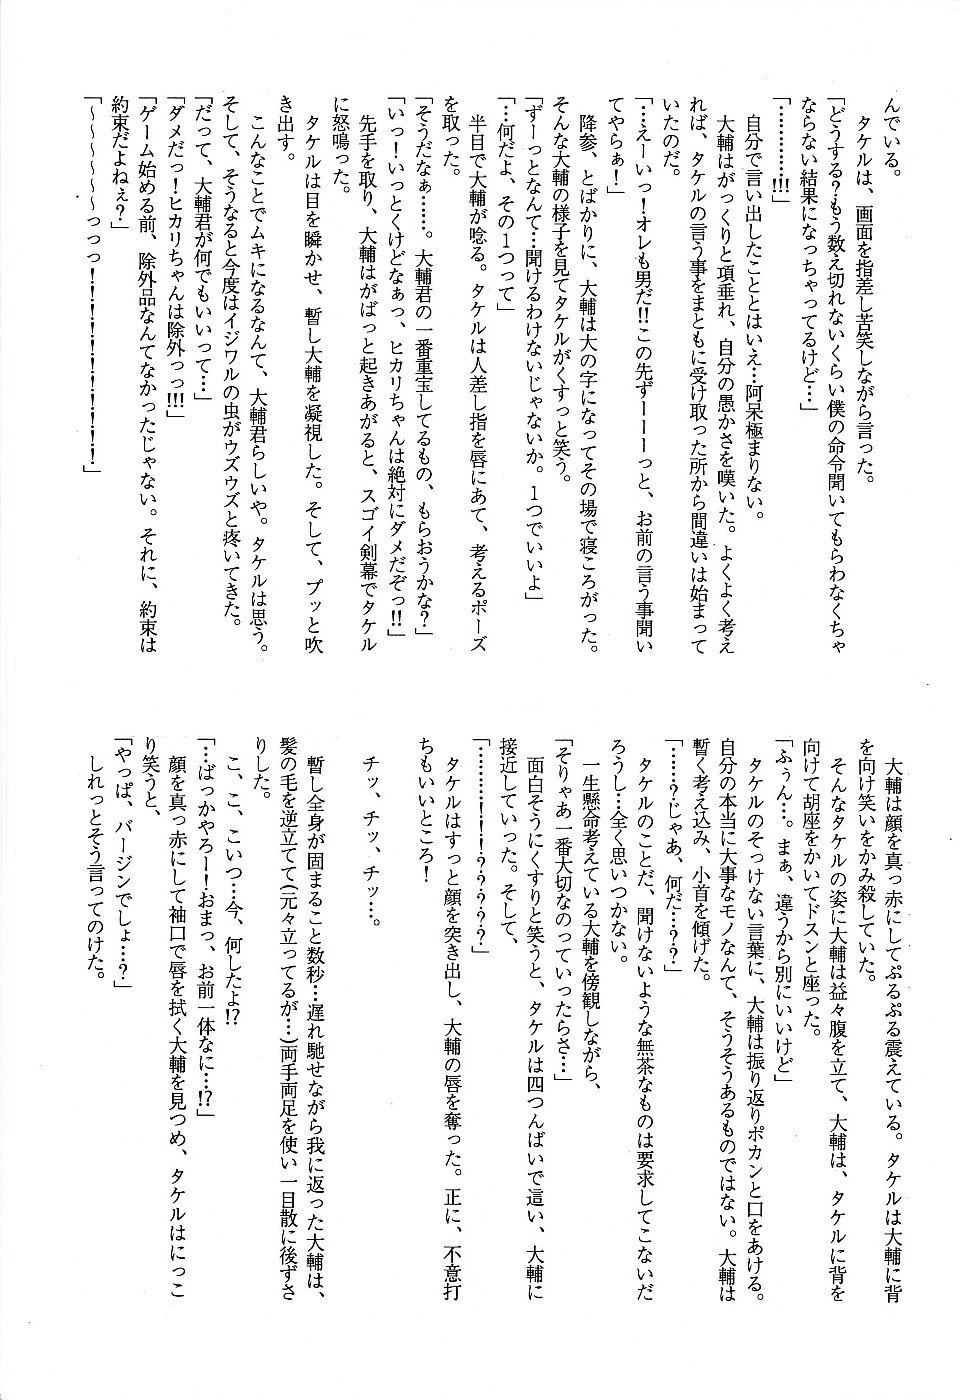 んでいる。
　タケルは、画面を指差し苦笑しながら言った。
「どうする？もう数え切れないくらい僕の命令聞いてもらわなくちゃ
ならない結果になっちゃってるけど…」
「…………!!!」
　自分で言い出したこととはいえ…阿呆極まりない。
　大輔はがっくりと項垂れ、自分の愚かさを嘆いた。よくよく考え
れば、タケルの言う事をまともに受け取った所から間違いは始まって
いたのだ。
「…えーいっ！オレも男だ!!この先ずーーーっと、お前の言う事聞い
てやらぁ！」
　降参、とばかりに、大輔は大の字になってその場で寝ころがった。
そんな大輔の様子を見てタケルがくすっと笑う。
「ずーっとなんて…聞けるわけないじゃないか。１つでいいよ」
「…何だよ、その１つって」
　半目で大輔が唸る。タケルは人差し指を唇にあて、考えるポーズ
を取った。
「そうだなぁ……。大輔君の一番重宝してるもの、もらおうかな？」
「いっ！いっとくけどなぁっ、ヒカリちゃんは絶対にダメだぞっ!!」
　先手を取り、大輔はがばっと起きあがると、スゴイ剣幕でタケル
に怒鳴った。
　タケルは目を瞬かせ、暫し大輔を凝視した。そして、プッと吹
き出す。
　こんなことでムキになるなんて、大輔君らしいや。タケルは思う。
そして、そうなると今度はイジワルの虫がウズウズと疼いてきた。
「だって、大輔君が何でもいいって…」
「ダメだっ！ヒカリちゃんは除外っっ!!!」
「ゲーム始める前、除外品なんてなかったじゃない。それに、約束は
約束だよねぇ？」
「～～～～～～っっっ！！！！！！！！！！」
　大輔は顔を真っ赤にしてぷるぷる震えている。タケルは大輔に背
を向け笑いをかみ殺していた。
　そんなタケルの姿に大輔は益々腹を立て、大輔は、タケルに背を
向けて胡座をかいてドスンと座った。
「ふぅん…。まぁ、違うから別にいいけど」
　タケルのそっけない言葉に、大輔は振り返りポカンと口をあける。
自分の本当に大事なモノなんて、そうそうあるものではない。大輔は
暫く考え込み、小首を傾げた。
「……？じゃあ、何だ…？？」
　タケルのことだ、聞けないような無茶なものは要求してこないだ
ろうし…全く思いつかない。
　一生懸命考えている大輔を傍観しながら、
「そりゃあ一番大切なのっていったらさ…」
　面白そうにくすりと笑うと、タケルは四つんばいで這い、大輔に
接近していった。そして、
「………！！？？？？？」
　タケルはすっと顔を突き出し、大輔の唇を奪った。正に、不意打
ちもいいところ！
　チッ、チッ、チッ…。
　暫し全身が固まること数秒…遅れ馳せながら我に返った大輔は、
髪の毛を逆立てて（元々立ってるが…）両手両足を使い一目散に後ずさ
りした。
　こ、こ、こいつ…今、何したよ!?
「…ばっかやろー！おまっ、お前一体なに…!?」
　顔を真っ赤にして袖口で唇を拭く大輔を見つめ、タケルはにっこ
り笑うと、
「やっぱ、バージンでしょ…？」
　しれっとそう言ってのけた。